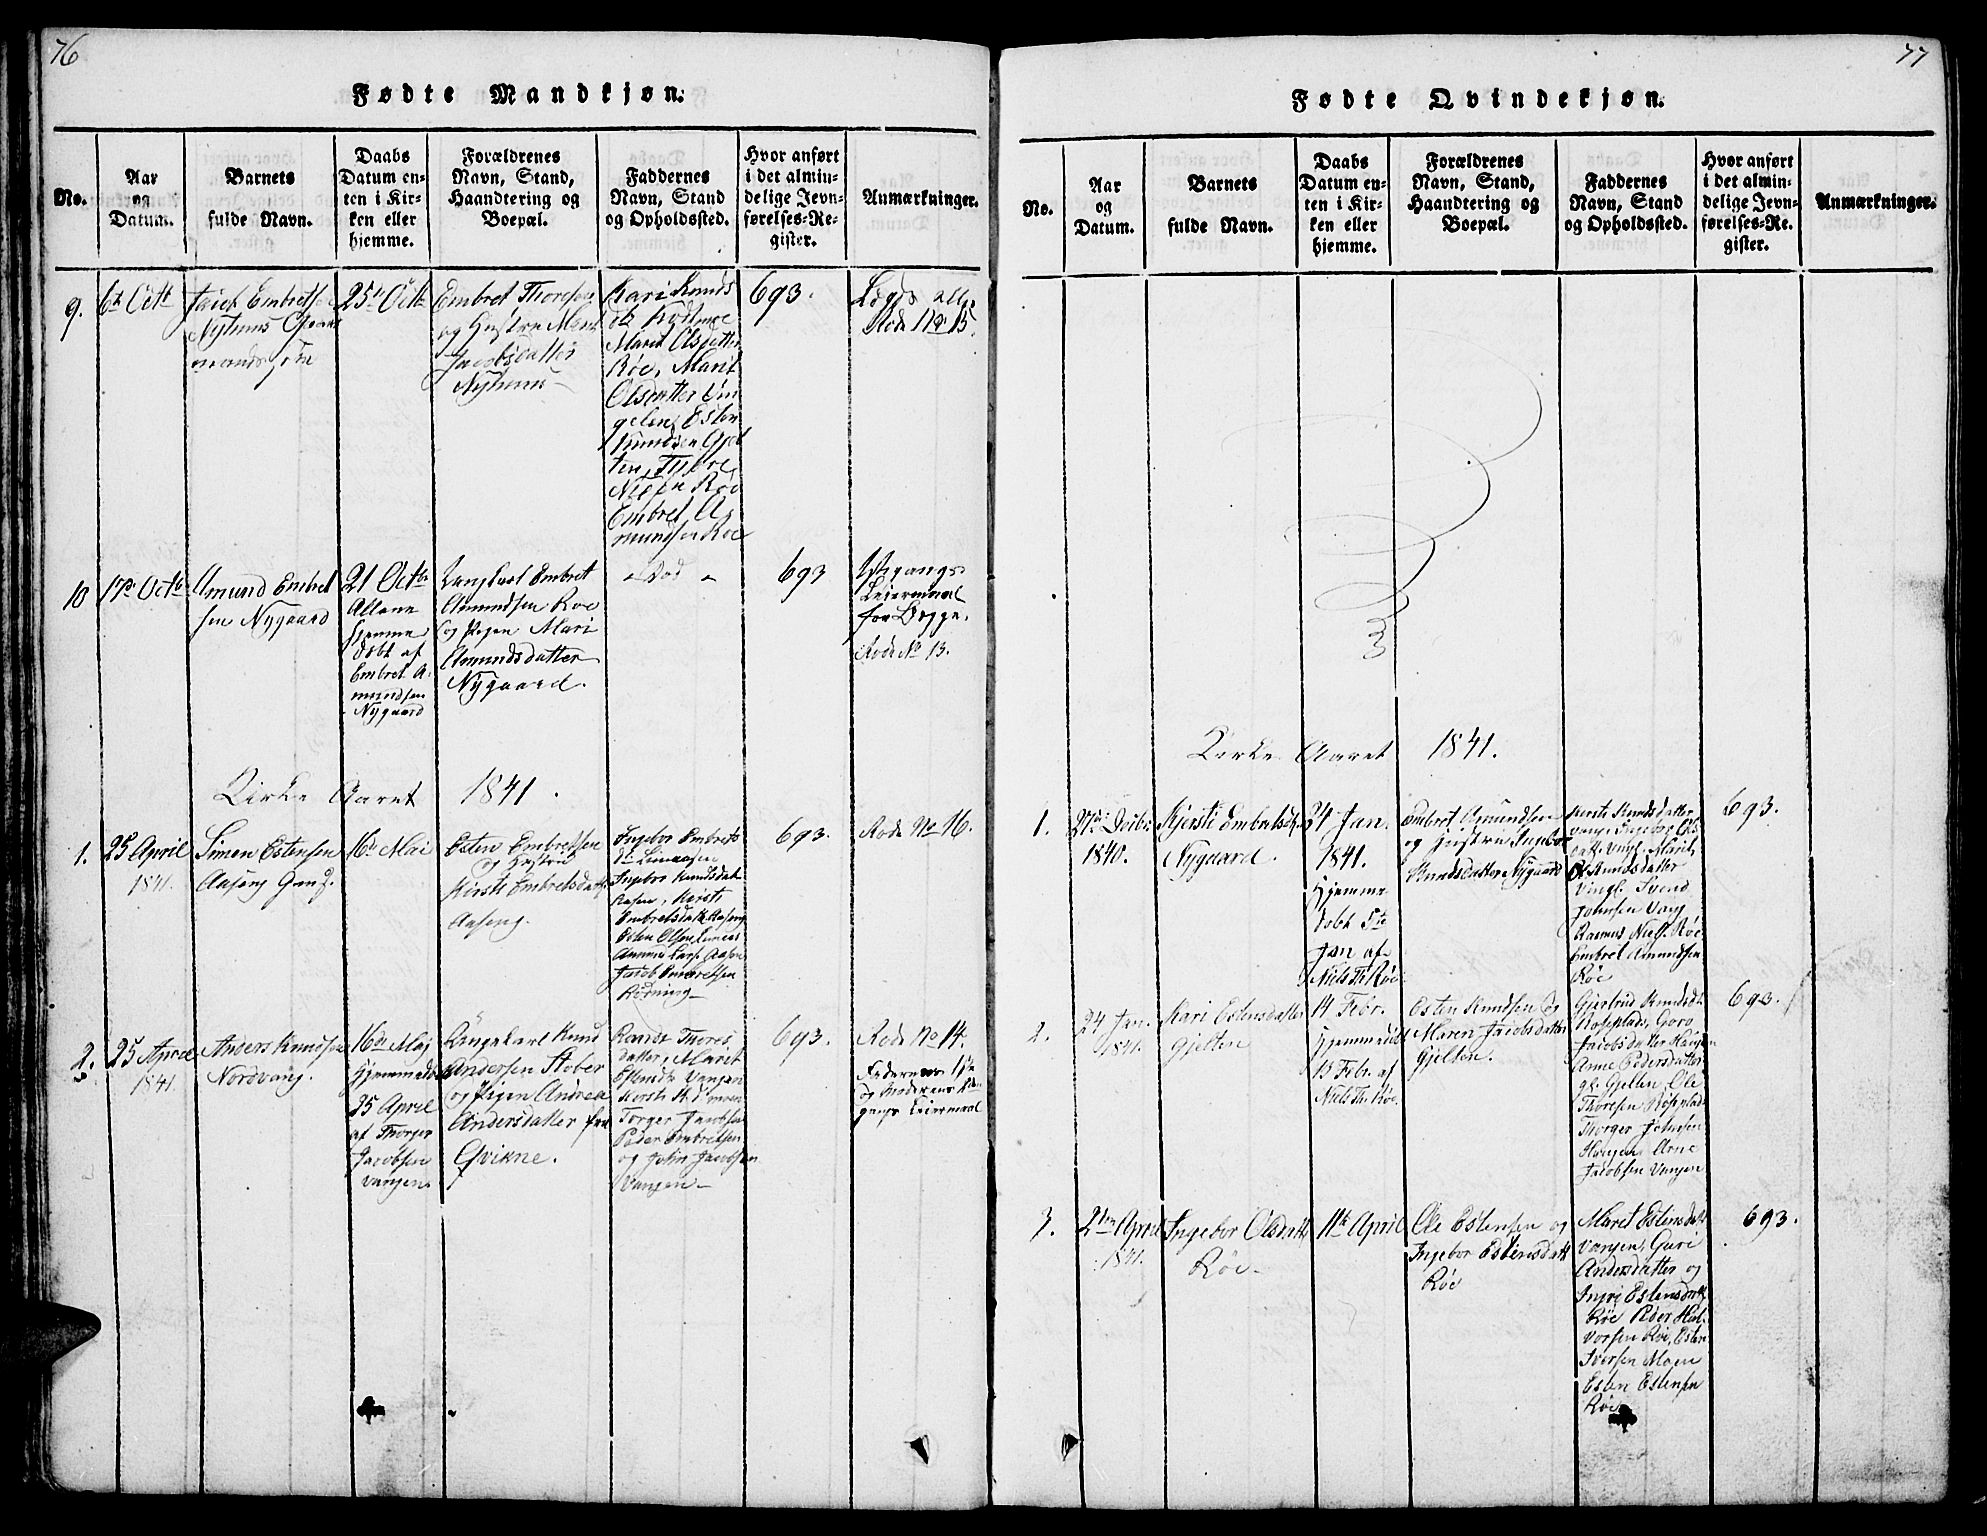 76
Fødte Mandkjøn.
No.
Aar
og
Datum.
Barnets
fulde Navn.
Daabs
Datum en-
ten i Kir-
ken eller
hjemme.
Forældrenes
Navn, Stand,
Haandtering og
Boepæl.
Faddernes
Navn, Stand
og Opholdssted.
Hvor anført
i det almin-
delige Jevn-
førelses-Re-
gister.
Anmærkninger.
9.
6te Octr
Embretse
25de Octr
Embret Thoresen
og Hustru
Jacobsdatter
Kari Knuds
Marit Olsdatter
Røe, Marit
Olsdatter Vin
gelen, Esten
Knudsen Gjel
ten,
Røe
Embret A-
mundsen Roe
693.
Rode No 15.
10
17de Octb
Amund Embret
sen Nygaard
21 Octbr
Hjemme
døbt af
Embret A-
mundsen
Nygaard
Ungkarl Embret
Amundsen Roe
og Pigen Mari
Amundsdatter
Nygaard.
693
1ste Gangs
Leiermaal
for Begge.
Rode No 13.
Kirke Aaret 1841.
1.
25 April
1841.
Simen Estensen
Aaseng
16de Mai
Esten Embretsen
og Hustru
Kirsti Embretsdatt.
Aaseng.
Ingebor Embrets
Ingebor Knudsdat
Aasen, Kirsti
Embretsdatt. Aaseng
Esten Olsen
Lars. Aasen
Jacob Embretsen
Rødning
693.
Rode No 16.
2.
25 April
1841.
Anders Knudsen
Nordvang.
16de Mai
Hjemmedøbt
25 April
af Thorger
Jacobsen
Vangen
Ungekarl Knud
Andersen Stober
og Pigen Andrea
Andersdatter fra
Qvikne.
Thores
datter, Maret
Vangen
Torger Jacobsen
Peder Embretsen
og John Jacobsen
Vangen
693.
Rode No 14.
Faderens 1ste
og Moderens
gangs Leiermaal
77
Fødte Qvindekjøn.
No.
Aar
og
Datum.
Barnets
fulde Navn.
Daabs
Datum en-
ten i Kir-
ken eller
hjemme.
Forældrenes
Navn, Stand,
Haandtering og
Boepæl.
Faddernes
Navn, Stand
og Opholdssted.
Hvor anført
i det almin-
delige Jevn-
førelses-Re-
gister.
Anmærkninger.
Kirke Aaret 1841.
1.
27de Decbr
1840.
Kjersti Embretsdt.
Nygaard.
24 Jan.
1841.
Hjemme
døbt 5te
Jan af
Niels Th. Røe
Embret Amundsen
og Hustru Ingebor
Knudsdatter Nygaard
Kirste Knudsdatter
Vingl. Ingebor Ols
datt. Vingl. Marit
Knudsdatter
Vingl. Svend
Johnsen Vang
Rasmus Niels. Røe
Embret Amundsen
Røe
693.
2.
24 Jan.
1841.
Kari Estensdatter
Gjelten
14 Febr.
Hjemmedøbt
13 Febr. af
Niels Th. Røe.
Esten Knudsen og
Maren Jacobsdatter
Gjelten.
Giertrud Knudsdt.
Roseplads, Goro
Jacobsdatter Haugen
Anne Pedersdatter
Gjelten Ole
Thoresen Røseplads
Thorger Johnsen
Haugen Arne
Jacobsen Vangen
693.
3.
2den April
1841.
Ingebor Olsdatt.
Røe.
11te April
Ole Estensen og
Ingebor Estensdatt.
Røe
Maret Estensdatt
Vangen, Guri
Andersdatter og
Ingri Estensdatt.
Røe Peder Hal-
vorsen Røe, Esten
Iversen Moen
Esten Estensen
Røe
693.